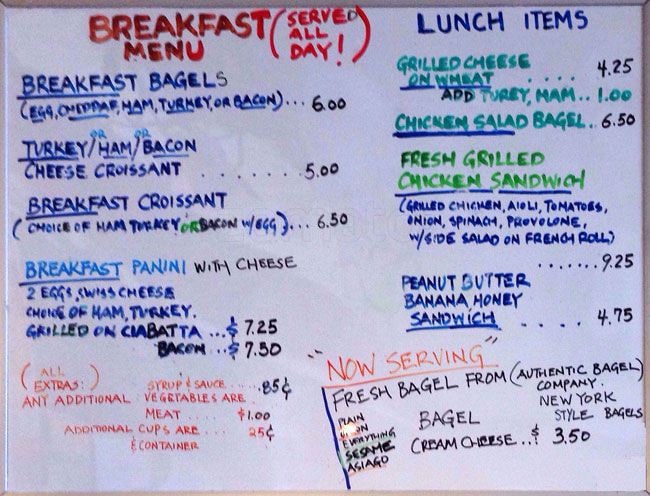 BREAKFAST MENU (SERVED ALL DAY!)
BREAKFAST BAGELS
(EGG, CHEDDAR, HAM, TURKEY, OR BACON)... 6.00
TURKEY/OR HAM/OR BACON
CHEESE CROISSANT ....... 5.00
BREAKFAST CROISSANT
(CHOICE OF HAM TURKEY OR BACON W/EGG)... 6.50
BREAKFAST PANINI WITH CHEESE
2 EGGS, SWISS CHEESE
CHOICE OF HAM, TURKEY.
GRILLED ON CIABATTA ...$ 7.25
BACON ...$ 7.50
(ALL EXTRAS:) SYRUP & SAUCE .... .85¢
ANY ADDITIONAL VEGETABLES ARE ..
MEAT .... $1.00
ADDITIONAL CUPS ARE ... 25¢
& CONTAINER
LUNCH ITEMS
GRILLED CHEESE
ON WHEAT ..... 4.25
ADD TUREY, HAM.. 1.00
CHICKEN SALAD BAGEL.. 6.50
FRESH GRILLED
CHICKEN SANDWICH
(GRILLED CHICKEN, AIOLI, TOMATOES,
ONION, SPINACH, PROVOLONE,
W/SIDE SALAD ON FRENCH ROLL)
....... 9.25
PEANUT BUTTER
BANANA HONEY
SANDWICH ..... 4.75
"NOW SERVING"
FRESH BAGEL FROM (AUTHENTIC BAGEL)
COMPANY.
NEW YORK
STYLE BAGELS
PLAIN
EVERYTHING
SESAME
ASIAGO
BAGEL
CREAM CHEESE...$ 3.50